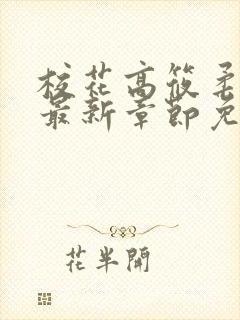 校花高筱柔
最新章節免
花半開